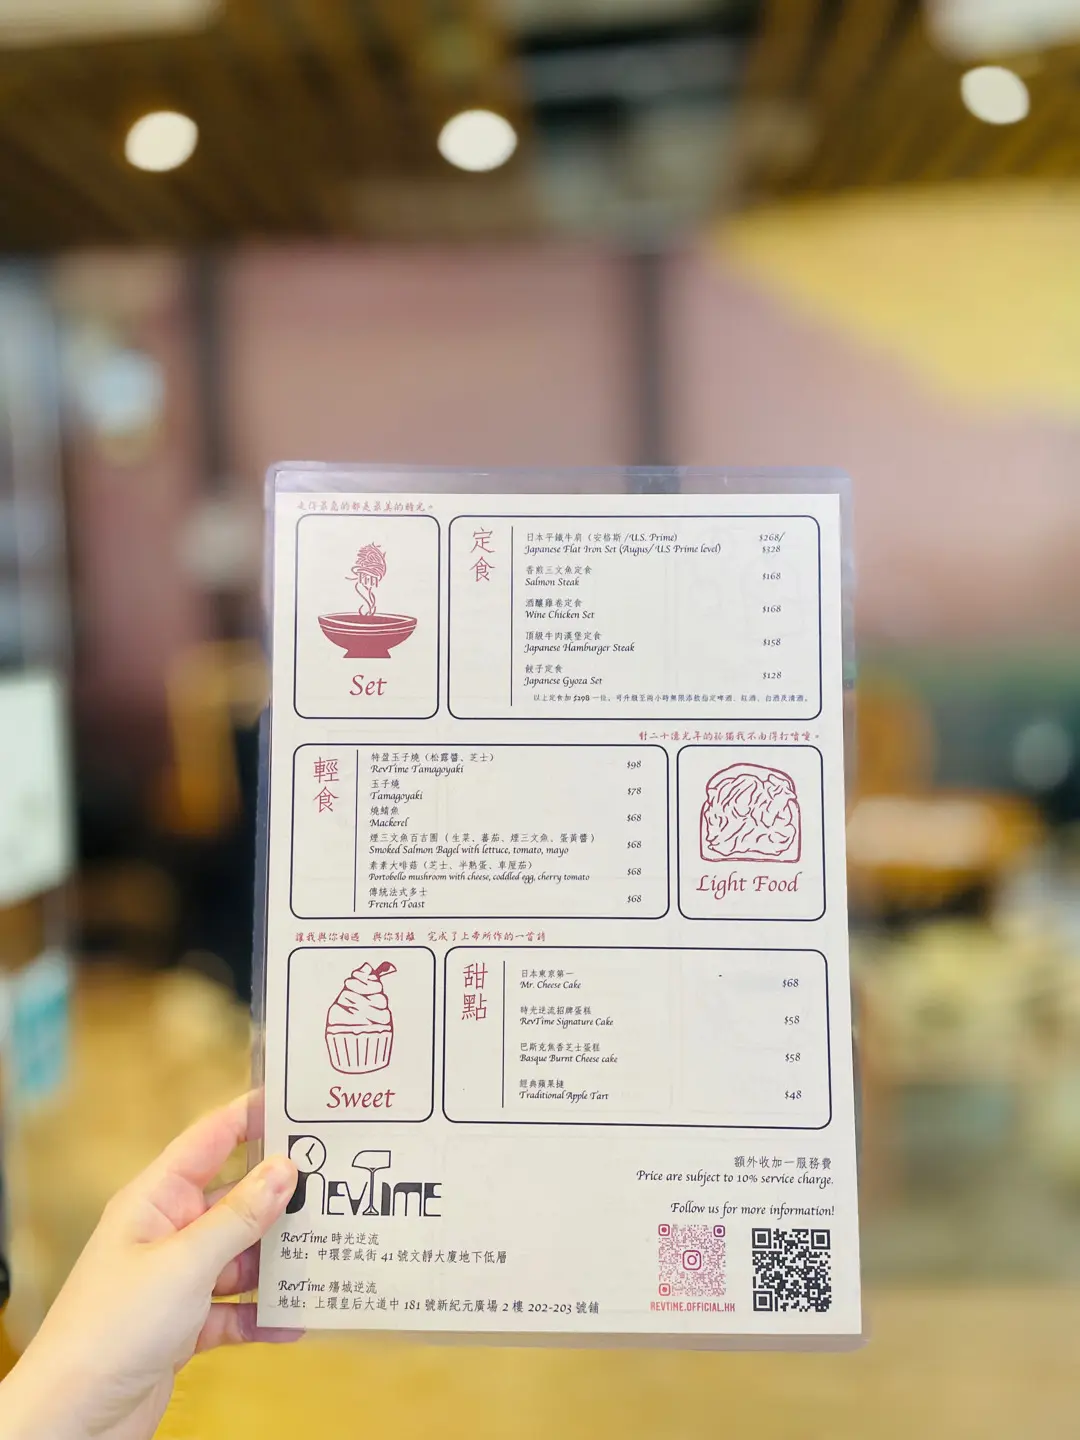 走得最急的都是最美的時光。
Set
定食
日本平鐵牛肩（安格斯 /U.S. Prime)
Japanese Flat Iron Set (Augus/ U.S Prime level)
$268/
$328
香煎三文魚定食
Salmon Steak
$168
酒釀雞卷定食
Wine Chicken Set
$168
頂級牛肉漢堡定食
Japanese Hamburger Steak
$158
餃子定食
Japanese Gyoza Set
$128
以上定食加 $298 一位，可升級至兩小時無限添飲指定啤酒、紅酒、白酒及清酒。
對二十億光年的孤獨我不由得打噴嚏。
輕食
特盈玉子燒（松露醬、芝士）
RevTime Tamagoyaki
$98
玉子燒
Tamagoyaki
$78
燒鯖魚
Mackerel
$68
煙三文魚百吉圈（生菜、蕃茄、煙三文魚、蛋黃醬）
Smoked Salmon Bagel with lettuce, tomato, mayo
$68
素素大啡菇（芝士、半熟蛋、車厘茄）
Portobello mushroom with cheese, coddled egg, cherry tomato
$68
傳統法式多士
French Toast
$68
Light Food
讓我與你相遇 與你別離 完成了上帝所作的一首詩
Sweet
甜點
日本東京第一
Mr. Cheese Cake
$68
時光逆流招牌蛋糕
RevTime Signature Cake
$58
巴斯克焦香芝士蛋糕
Basque Burnt Cheese cake
$58
經典蘋果撻
Traditional Apple Tart
$48
REVTIME
額外收加一服務費
Price are subject to 10% service charge.
Follow us for more information!
RevTime 時光逆流
地址：中環雲咸街 41 號文靜大廈地下低層
RevTime 殤城逆流
地址：上環皇后大道中 181 號新紀元廣場 2 樓 202-203 號舖
REVTIME.OFFICIAL.HK